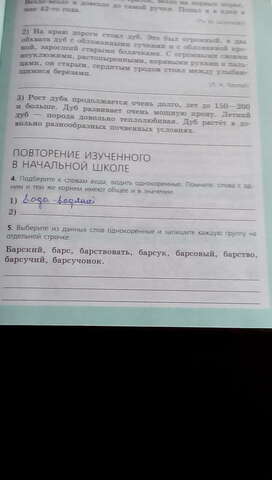 мае 42-го года.
2) На краю дороги стоял дуб. Это был огромный, в два
обхвата дуб с обломанными сучками и с обломанной ко-
рой, заросшей старыми болячками. С огромными своими
неуклюжими, растопыренными, корявыми руками и паль-
цами, он старым, сердитым уродом стоял между улыбаю-
щимися берёзами.
3) Рост дуба продолжается очень долго, лет до 150—200
и больше. Дуб развивает очень мощную крону. Летний
дуб — порода довольно теплолюбивая. Дуб растёт в до-
вольно разнообразных почвенных условиях.
ПОВТОРЕНИЕ ИЗУЧЕННОГО
В НАЧАЛЬНОЙ ШКОЛЕ
4. Подберите к словам вода, водить однокоренные. Помните: слова с од-
ним и тем же корнем имеют общее и в значении.
1) Вода - водный
2)
5. Выберите из данных слов однокоренные и запишите каждую группу на
отдельной строчке.
Барский, барс, барствовать, барсук, барсовый, барство,
барсучий, барсучонок.